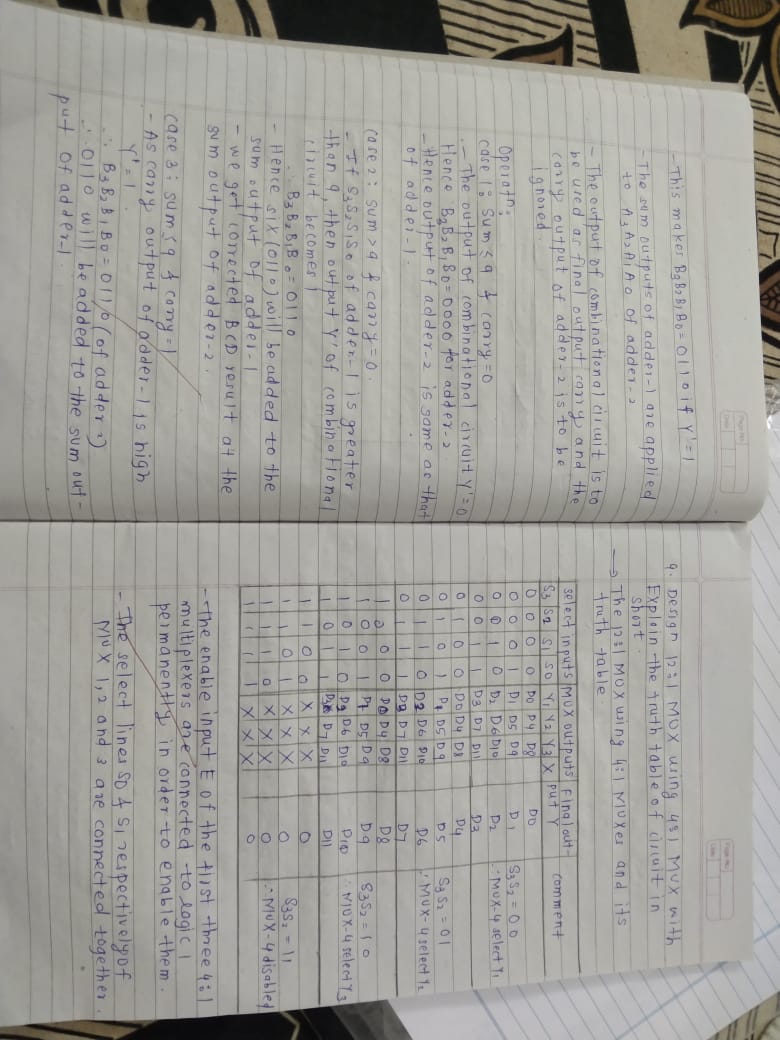 Page No
Date
- This makes B3B2B1B0 = 0110 if Y' = 1
- The sum outputs of adder-1 are applied
to A3A2A1A0 of adder-2
- The output of combinational circuit is to
be used as final output carry and the
carry output of adder-2 is to be
ignored.
Operatn:
case 1: Sum ≤ 9 & carry = 0
- The output of combinational circuit Y' = 0
Hence B3B2B1B0 = 0000 for adder-2
- Hence output of adder-2 is same as that
of adder-1.
case 2: sum > 9 & carry = 0.
- If S3S2S1S0 of adder-1 is greater
than 9, then output Y' of combinational
circuit becomes 1
∴ B3B2B1B0 = 0110
- Hence six (0110) will be added to the
sum output of adder-1
- we get corrected BCD result at the
sum output of adder-2.
case 3: sum ≤ 9 & carry = 1
- As carry output of adder-1 is high
Y' = 1
∴ B3B2B1B0 = 0110 (of adder 2)
∴ 0110 will be added to the sum out-
put of adder-1
Page No:
Date
9. Design 12:1 MUX using 4:1 MUX with
Explain the truth table of circuit in
short.
→ The 12:1 MUX using 4:1 MUXes and its
truth table.
select inputs MUX outputs Final out- comment
S3 S2 S1 S0 Y1 Y2 Y3 X put Y
0 0 0 0 D0 D4 D8 D0
0 0 0 1 D1 D5 D9 D1 S3S2 = 00
0 0 1 0 D2 D6 D10 D2 ∴ MUX-4 select Y1
0 0 1 1 D3 D7 D11 D3
0 1 0 0 D0 D4 D8 D4
0 1 0 1 D1 D5 D9 D5 S3S2 = 01
0 1 1 0 D2 D6 D10 D6 ∴ MUX-4 select Y2
0 1 1 1 D3 D7 D11 D7
1 0 0 0 D0 D4 D8 D8
1 0 0 1 D1 D5 D9 D9 S3S2 = 10
1 0 1 0 D2 D6 D10 D10 ∴ MUX-4 select Y3
1 0 1 1 D3 D7 D11 D11
1 1 0 0 X X X 0
1 1 0 1 X X X 0 S3S2 = 11
1 1 1 0 X X X 0 ∴ MUX-4 disabled
1 1 1 1 X X X 0
- The enable input E of the first three 4:1
multiplexers are connected to logic 1
permanently in order to enable them.
- The select lines S0 & S1 respectively of
MUX 1, 2 and 3 are connected together.